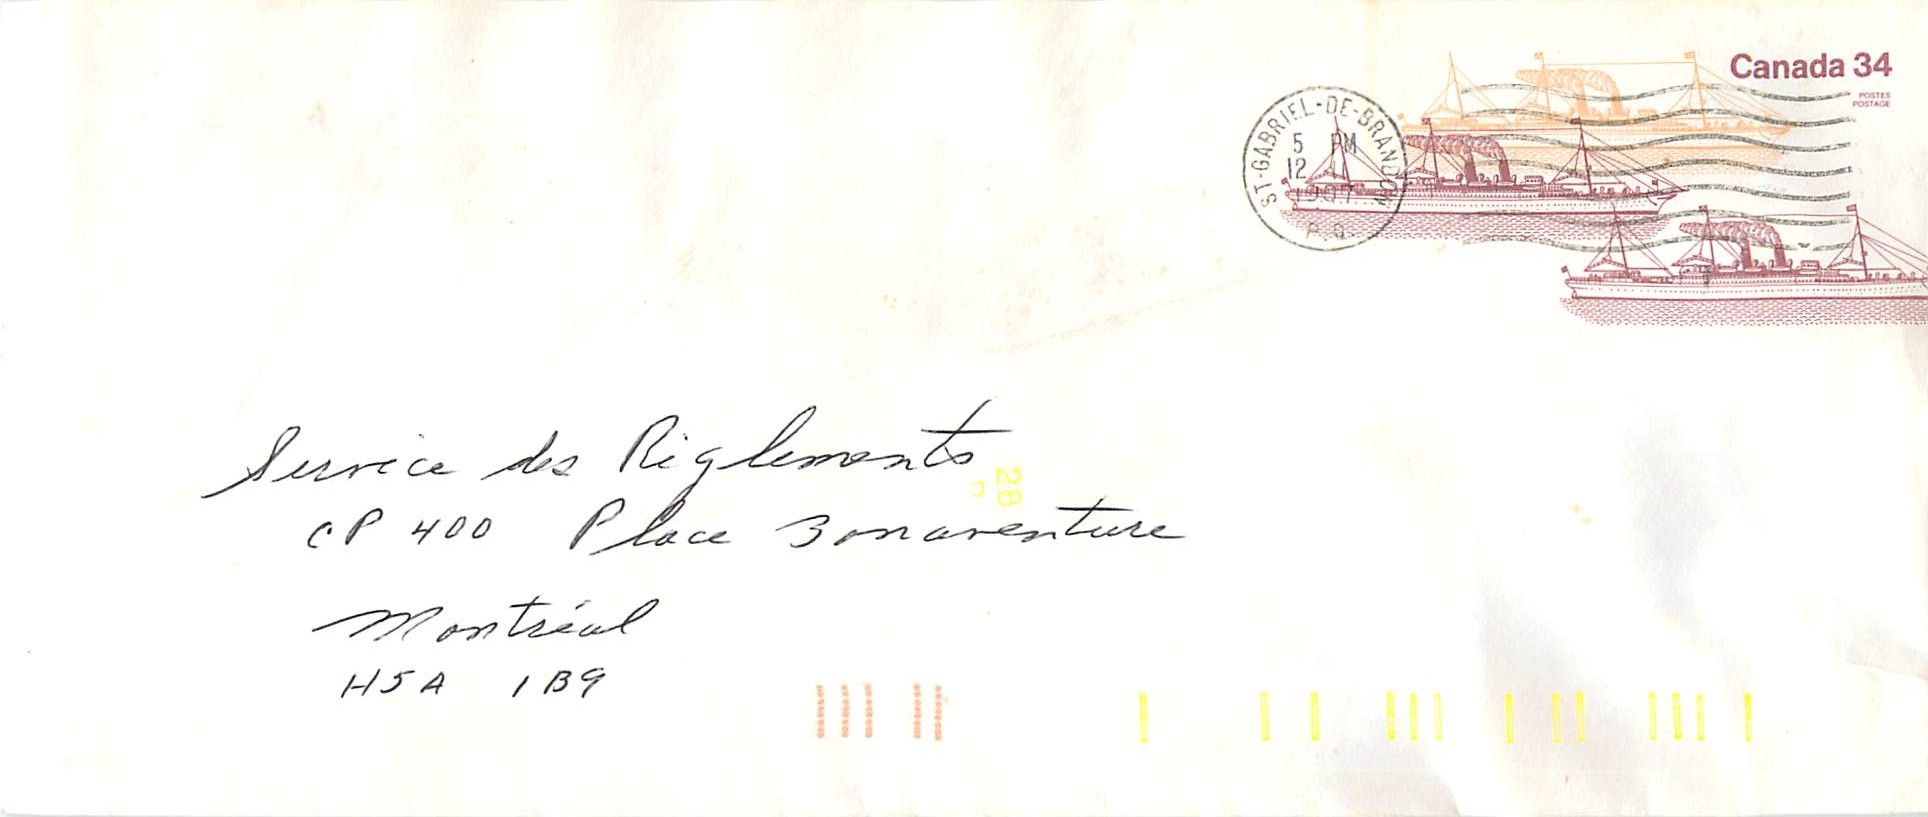 Canada 34
POSTES
POSTAGE
ST-GABRIEL-DE-BRANDON
5 PM
12
P.Q.
Service des Riglements
28
CP 400 Place Bonaventure
Montréal
H5A 1B9